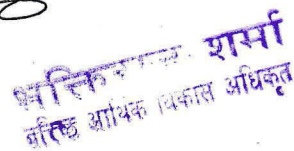 शर्मा
वरिष्ठ आर्थिक विकास अधिकृत